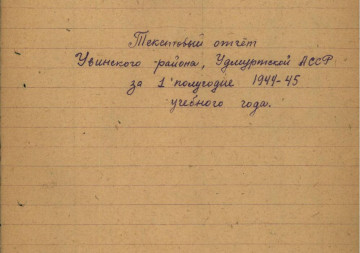 Текстовый отчёт
Увинского района, Удмуртской АССР
за 1 полугодие 1944-45
учебного года.